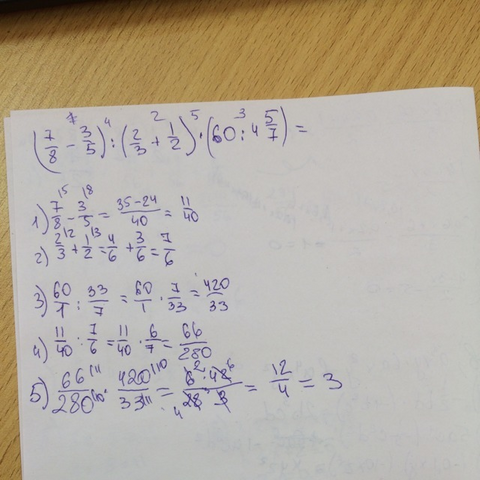 (7/8 - 3/5) : (2/3 + 1/2) · (60 : 4 5/7) =
1) 7/8 - 3/5 = 35-24/40 = 11/40
2) 2/3 + 1/2 = 4/6 + 3/6 = 7/6
3) 60/1 : 33/7 = 60/1 · 7/33 = 420/33
4) 11/40 : 7/6 = 11/40 · 6/7 = 66/280
5) 66/280 · 420/33 = 6·42/28·3 = 12/4 = 3